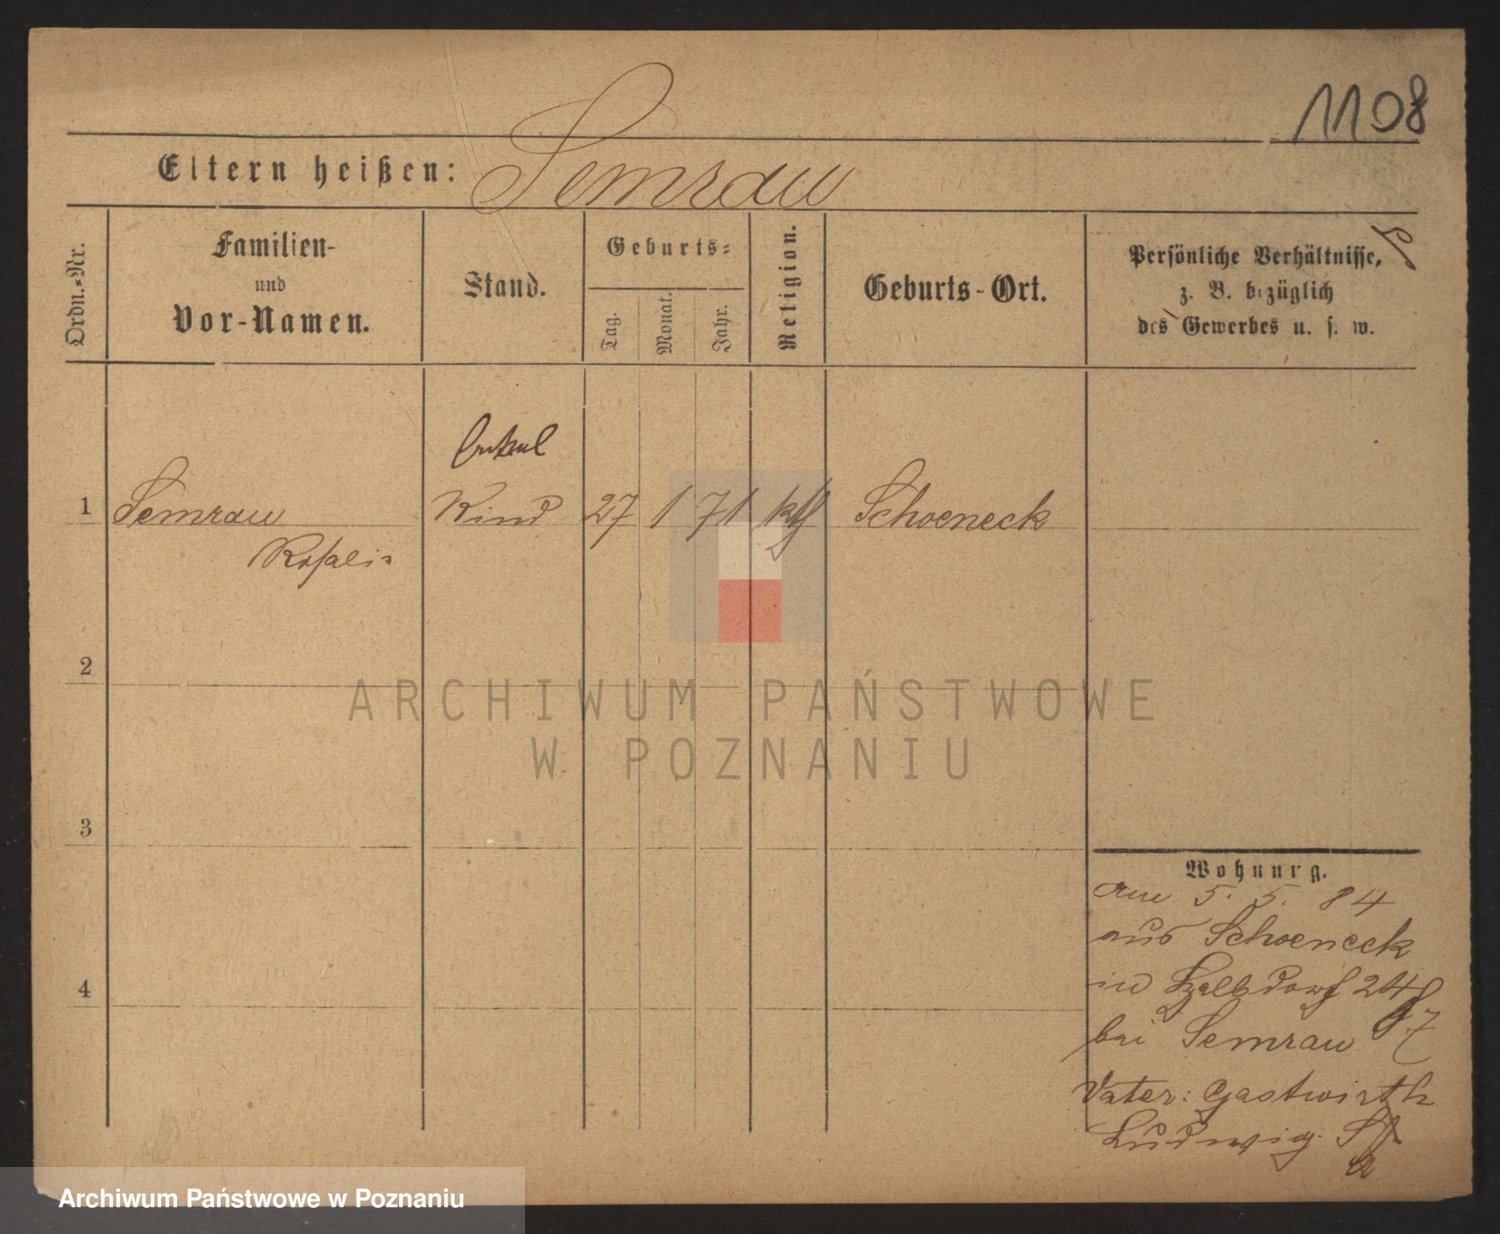 1108
Eltern heißen: Semrau
Ordn.-Nr.
Familien-
und
Vor-Namen.
Stand.
Geburts-
Tag.
Monat.
Jahr.
Religion.
Geburts-Ort.
Persönliche Verhältnisse,
z. B. bezüglich
des Gewerbes u. s. w.
1 Semrau Kind 27 1 71 kth Schoeneck
Rosalia
2
ARCHIWUM PAŃSTWOWE
W POZNANIU
3
Wohnung.
am 5. 5. 84
aus Schoeneck
in
4
bei Semrau
Vater: Gastwirth
Ludwig S
Archiwum Państwowe w Poznaniu